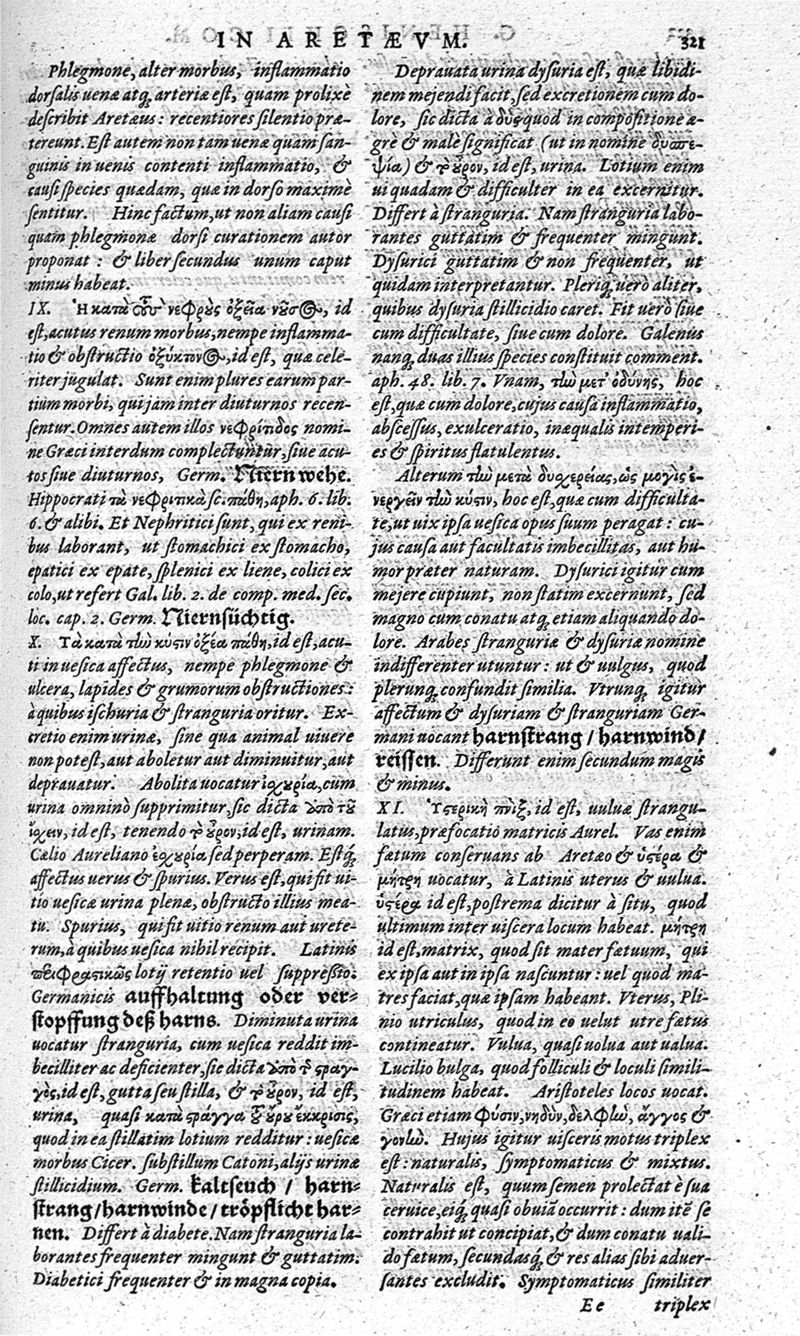 IN ARETÆVM. 321
Phlegmone, alter morbus, inflammatio
dorsalis uenæ atq́; arteriæ est, quam prolixè
describit Aretæus: recentiores silentio præ-
tereunt. Est autem non tam uenæ quam san-
guinis in uenis contenti inflammatio, &
causi species quædam, quæ in dorso maximè
sentitur. Hinc factum, ut non aliam causi
quam phlegmonæ dorsi curationem autor
proponat: & liber secundus unum caput
minus habeat.
IX. Ἡ κατὰ τοὺς νεφροὺς ὀξεῖα νοῦσος, id
est, acutus renum morbus, nempe inflamma-
tio & obstructio ὀξύκτονος, id est, quæ cele-
riter jugulat. Sunt enim plures earum par-
tium morbi, qui jam inter diuturnos recen-
sentur. Omnes autem illos νεφρίτιδος nomi-
ne Græci interdum complectuntur, siue acu-
tos siue diuturnos, Germ. Niernwehe.
Hippocrati τὰ νεφριτικὰ sc. πάθη, aph. 6. lib.
6. & alibi. Et Nephritici sunt, qui ex reni-
bus laborant, ut stomachici ex stomacho,
epatici ex epate, splenici ex liene, colici ex
colo, ut refert Gal. lib. 2. de comp. med. sec.
loc. cap. 2. Germ. Niernsüchtig.
X. Τὰ κατὰ τὴν κύστιν ὀξέα πάθη, id est, acu-
ti in uesica affectus, nempe phlegmone &
ulcera, lapides & grumorum obstructiones:
à quibus ischuria & stranguria oritur. Ex-
cretio enim urinæ, sine qua animal uiuere
non potest, aut aboletur aut diminuitur, aut
deprauatur. Abolita uocatur ἰσχουρία, cum
urina omninò supprimitur, sic dicta ἀπὸ τοῦ
ἴσχειν, id est, tenendo τὸ οὖρον, id est, urinam.
Cælio Aureliano ἐσχουρία sed perperam. Estq́;
affectus uerus & spurius. Verus est, qui fit ui-
tio uesicæ urina plenæ, obstructo illius mea-
tu. Spurius, qui fit uitio renum aut urete-
rum, à quibus uesica nihil recipit. Latinis
περιφραστικῶς lotij retentio uel suppreßio.
Germanicis auffhaltung oder ver-
stopffung deß harns. Diminuta urina
uocatur stranguria, cum uesica reddit im-
becilliter ac deficienter, sic dicta ἀπὸ τῆς στραγ-
γὸς, id est, gutta seu stilla, & τὸ οὖρον, id est,
urina, quasi κατὰ στράγγα τοῦ οὔρου ἔκκρισις,
quod in ea stillatim lotium redditur: uesicæ
morbus Cicer. substillum Catoni, alijs urinæ
stillicidium. Germ. kaltseuch / harn-
strang/harnwinde/tröpflicht har-
nen. Differt à diabete. Nam stranguria la-
borantes frequenter mingunt & guttatim:
Diabetici frequenter & in magna copia.
Deprauata urina dysuria est, quæ libidi-
nem mejendi facit, sed excretionem cum do-
lore, sic dicta à δυς quod in compositione æ-
grè & malè significat (ut in nomine δυσπε-
ψία) & τὸ οὖρον, id est, urina. Lotium enim
ui quadam & difficulter in ea excernitur.
Differt à stranguria. Nam stranguria labo-
rantes guttatim & frequenter mingunt.
Dysurici guttatim & non frequenter, ut
quidam interpretantur. Pleriq́; uerò aliter,
quibus dysuria stillicidio caret. Fit uerò siue
cum difficultate, siue cum dolore. Galenus
nanq́; duas illius species constituit comment.
aph. 48. lib. 7. Vnam, τὴν μετ' ὀδύνης, hoc
est, quæ cum dolore, cujus causa inflammatio,
abscessus, exulceratio, inæqualis intemperi-
es & spiritus flatulentus.
Alterum τὴν μετὰ δυσχερείας, ὡς μόγις ἐ-
νεργεῖν τὴν κύστιν, hoc est, quæ cum difficulta-
te, ut uix ipsa uesica opus suum peragat: cu-
jus causa aut facultatis imbecillitas, aut hu-
mor præter naturam. Dysurici igitur cum
mejere cupiunt, non statim excernunt, sed
magno cum conatu atq́; etiam aliquando do-
lore. Arabes stranguriæ & dysuriæ nomine
indifferenter utuntur: ut & uulgus, quod
plerunq́; confundit similia. Vtrunq́; igitur
affectum & dysuriam & stranguriam Ger-
mani uocant harnstrang / harnwind/
reissen. Differunt enim secundum magis
& minus.
XI. Ὑστερικὴ πνίξ, id est, uuluæ strangu-
latus, præfocatio matricis Aurel. Vas enim
fætum conseruans ab Aretæo & ὑστέρα &
μήτρη uocatur, à Latinis uterus & uulua.
ὑστέρα id est, postrema dicitur à situ, quod
ultimum inter uiscera locum habeat. μήτρη
id est, matrix, quod sit mater fætuum, qui
ex ipsa aut in ipsa nascuntur: uel quod ma-
tres faciat, quæ ipsam habeant. Vterus, Pli-
nio utriculus, quod in eo uelut utre fætus
contineatur. Vulua, quasi uolua aut ualua.
Lucilio bulga, quod folliculi & loculi simili-
tudinem habeat. Aristoteles locos uocat.
Græci etiam φύσιν, νηδὺν, δελφὺν, ἄγγος &
γονὴν. Hujus igitur uisceris motus triplex
est: naturalis, symptomaticus & mixtus.
Naturalis est, quum semen prolectat è sua
ceruice, eiq́; quasi obuiã occurrit: dum itẽ se
contrahit ut concipiat, & dum conatu uali-
do fætum, secundasq́; & res alias sibi aduer-
santes excludit. Symptomaticus similiter
Ee triplex